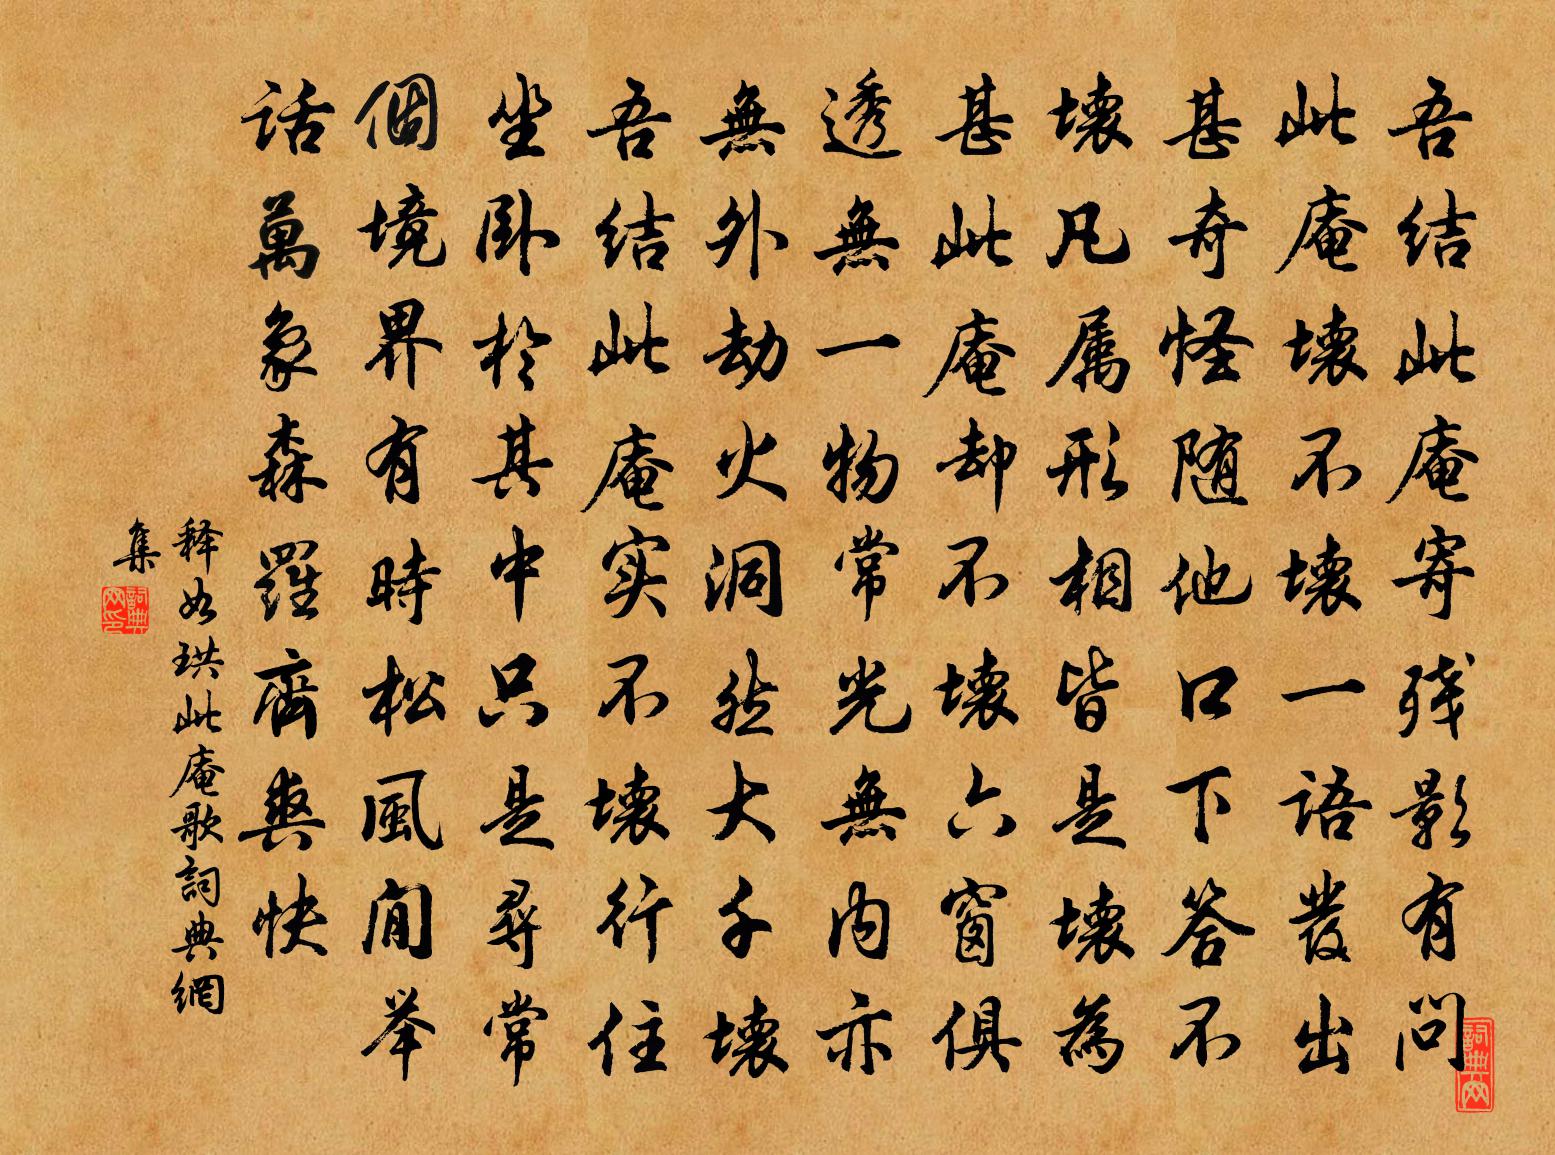 吾结此庵寄残影有问
此庵壞不壞一語發出
甚奇怪随他口下答不
壞凡属形相皆是壞為
甚此庵却不壞六窗俱
透無一物常光無内亦
無外劫火洞然大千壞
吾结此庵实不壞行住
坐卧於其中只是尋常
個境界有時松風閒举
话萬象森羅齊爽快
释如珙此庵歌詞典網
集
詞典网印
詞典网